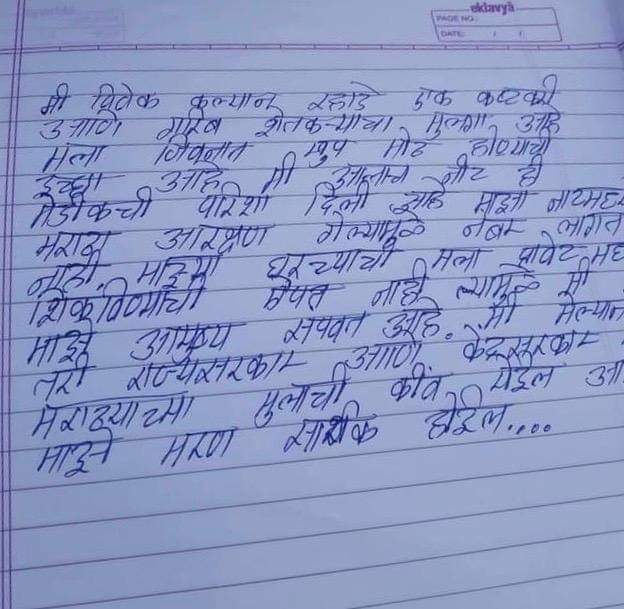 eklavya
PAGE NO.
DATE: / /
मी विवेक कल्यान रहाडे एक कष्टकरी
आणि गरिब शेतकऱ्याचा मुलगा आहे
मला जिवनात खुप मोठ होण्याची
इच्छा आहे मी आत्ताच नीट ही
मेडीकची परिशा दिली आहे माझा नीटमध्ये
मराठा आरक्षण गेल्यामुळे नंबर लागत
नाही. माझ्या घरच्याची मला प्रावेट मध
शिकविण्याची ऐपत नाही त्यामुळे मी
माझे आयुष्य सपवत आहे. मी मेल्यान
तरी राज्यसरकार आणि केंद्रसरकार
मराठ्याच्या मुलाची कीव येईल आ
माझे मरण सार्थक होईल....